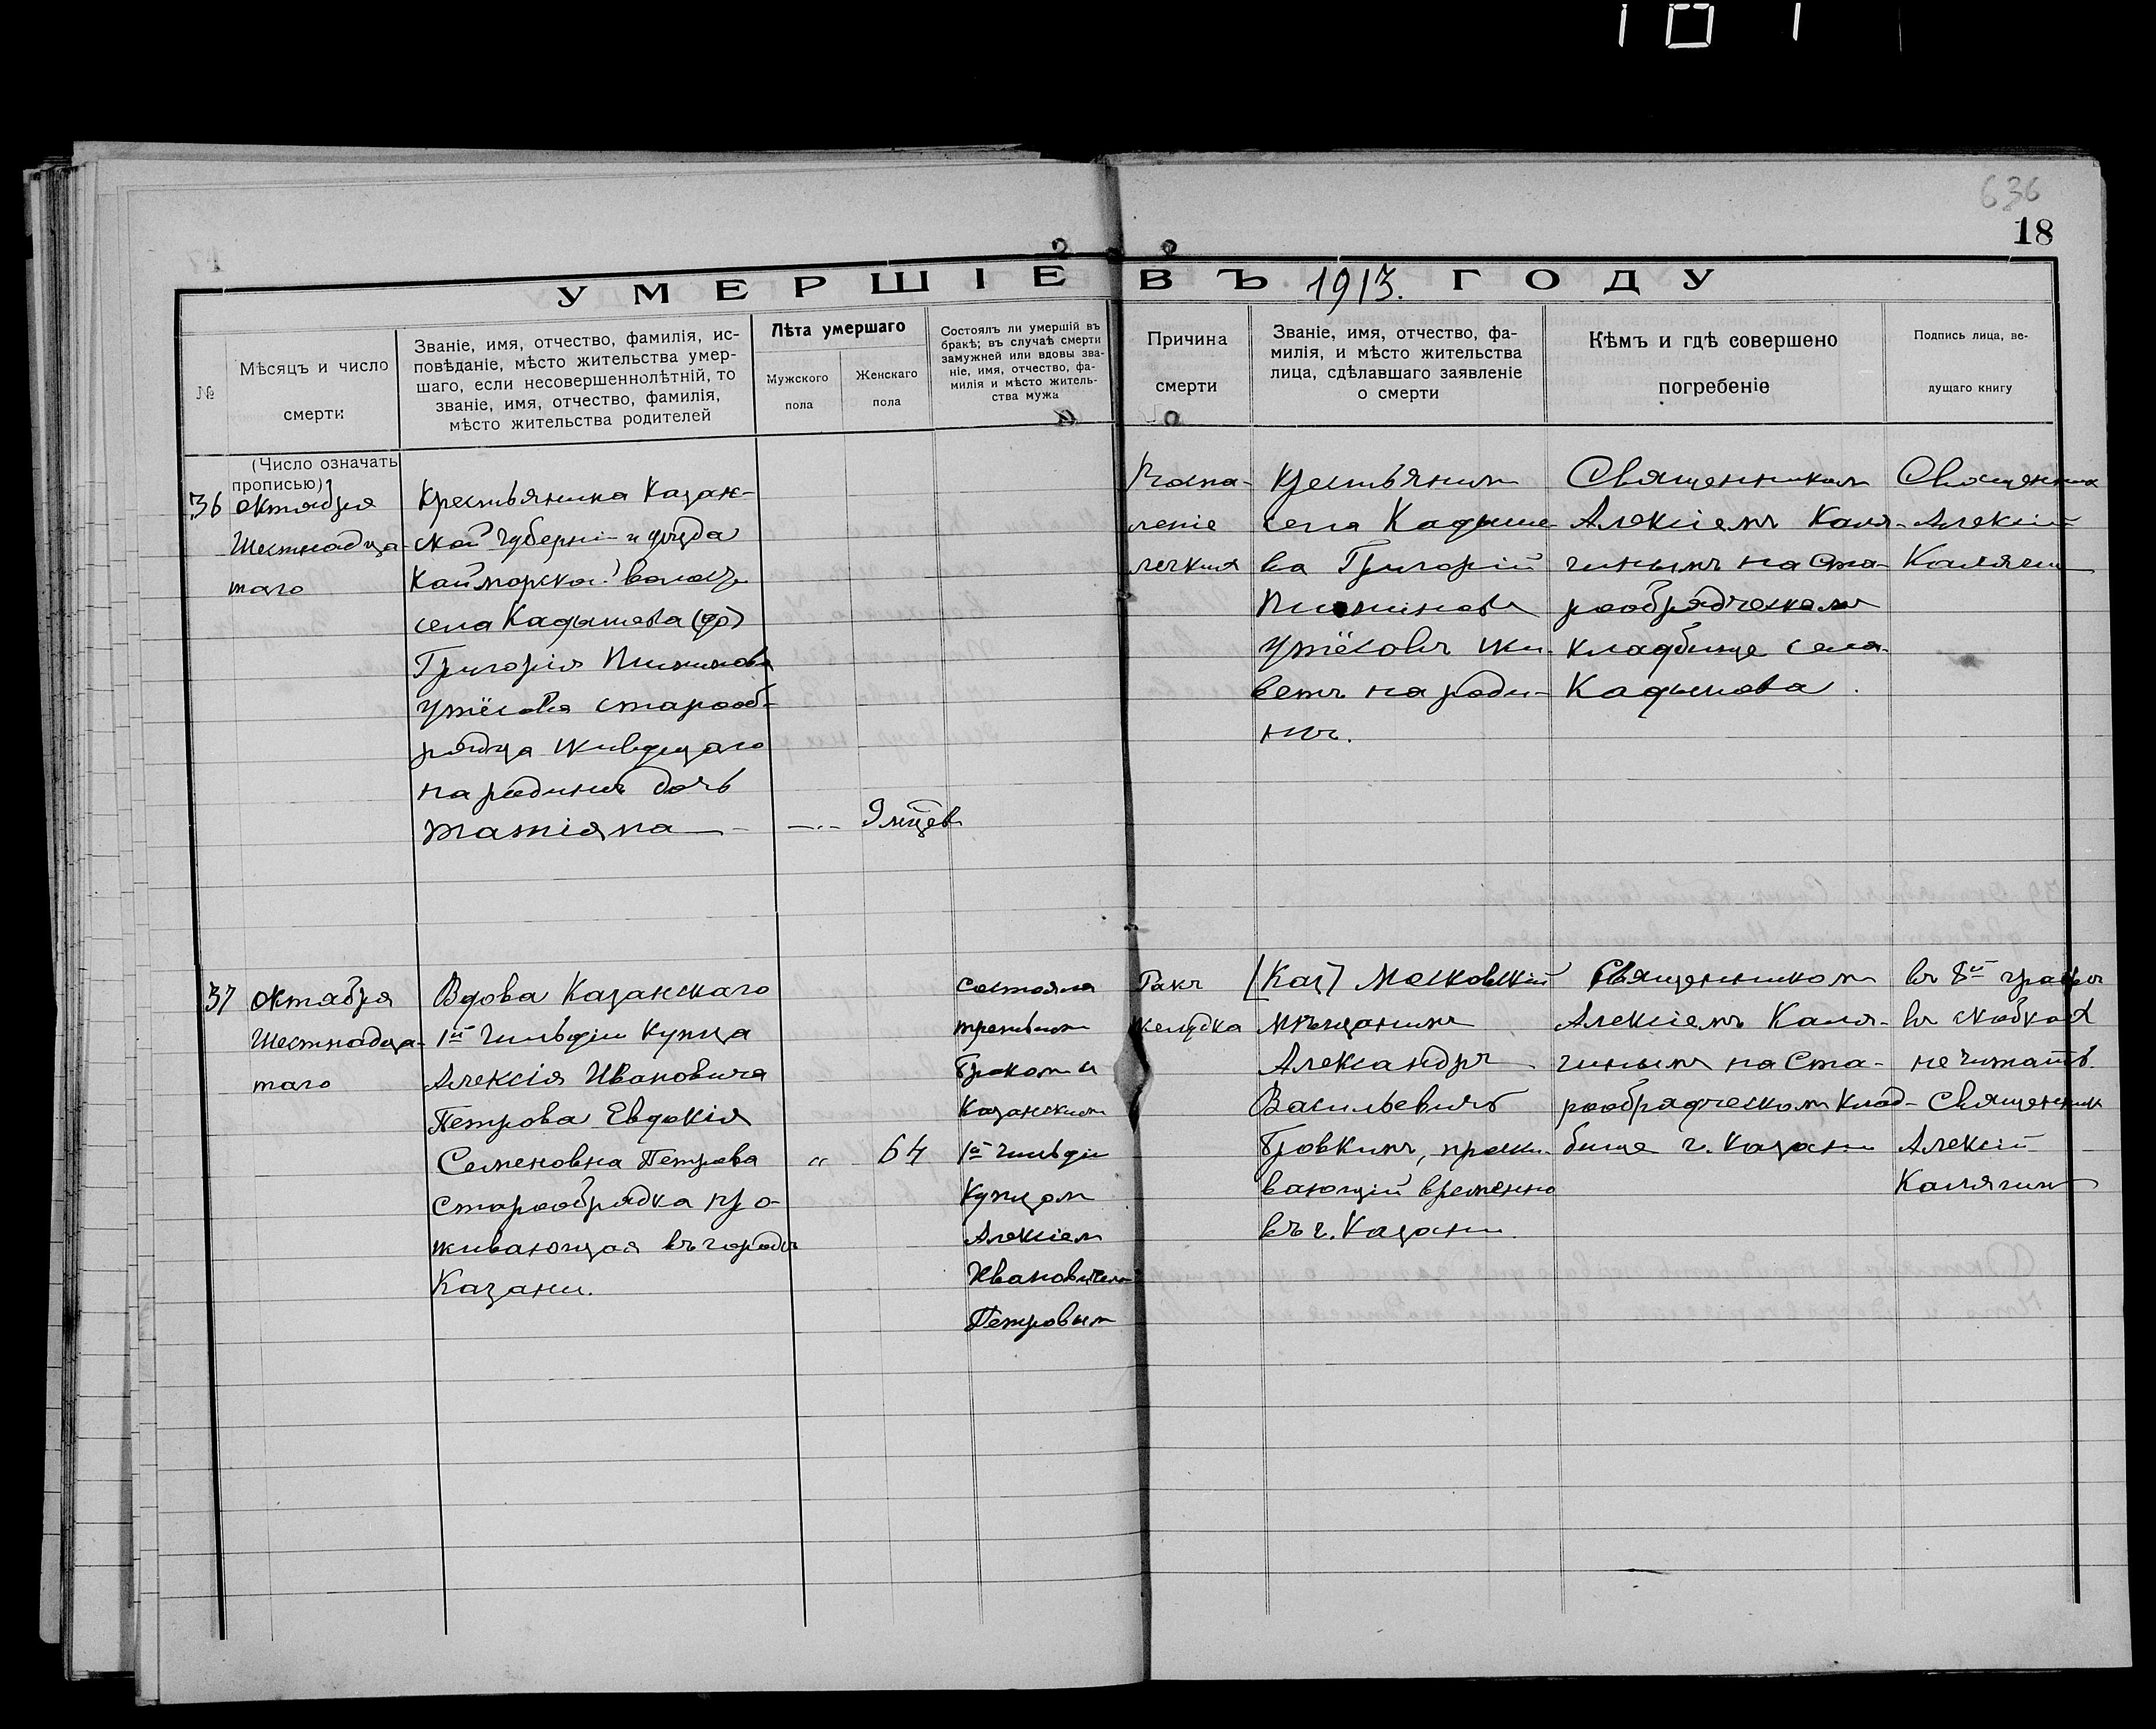 636
18
УМЕРШІЕ ВЪ 1913. ГОДУ
№
Мѣсяцъ и число
смерти
Званіе, имя, отчество, фамилія, ис-
повѣданіе, мѣсто жительства умер-
шаго, если несовершеннолѣтній, то
званіе, имя, отчество, фамилія,
мѣсто жительства родителей
Лѣта умершаго
Мужского
пола
Женскаго
пола
Состоялъ ли умершій въ
бракѣ; въ случаѣ смерти
замужней или вдовы зва-
ніе, имя, отчество, фа-
милія и мѣсто житель-
ства мужа
Причина
смерти
Званіе, имя, отчество, фа-
милія, и мѣсто жительства
лица, сдѣлавшаго заявленіе
о смерти
Кѣмъ и гдѣ совершено
погребеніе
Подпись лица, ве-
дущаго книгу
(Число означать
прописью)
36
Октября
Шестнадца-
таго
Крестьянина Казан-
ской губерніи и уѣзда
Каймарской волости
села Кадышева
Григорія Пименова
Утёсова старооб-
рядца живущаго
на родинѣ дочь
Татіяна
9 мцев
Воспа-
леніе
легкихъ
Крестьянин
села Кадыше-
ва Григорій
Пименовъ
Утёсовъ жи-
ветъ на роди-
нѣ.
Священником
Алексіемъ Каля-
гинымъ на Ста-
рообрядческомъ
кладбище села
Кадышева.
Священник
Алексій
Калягин
37
Октября
Шестнадца-
таго
Вдова Казанскаго
1й Гильдіи Купца
Алексія Ивановича
Петрова Евдокія
Семеновна Петрова
Старообрядка про-
живающая въ городѣ
Казани.
"
64
состояла
третьим
браком с
Казанским
1й гильдіи
Купцом
Алексіем
Ивановичем
Петровым
Ракъ
желудка
[Каз] Московскій
Мѣщанинъ
Александръ
Васильевичъ
Бровкинъ, прожи-
вающій временно
въ г. Казани.
Священником
Алексіемъ Каля-
гиным на Ста-
рообрядческом клад-
бище г. Казани
въ 8й графѣ
въ скобках
не читать.
Священник
Алексій
Калягин